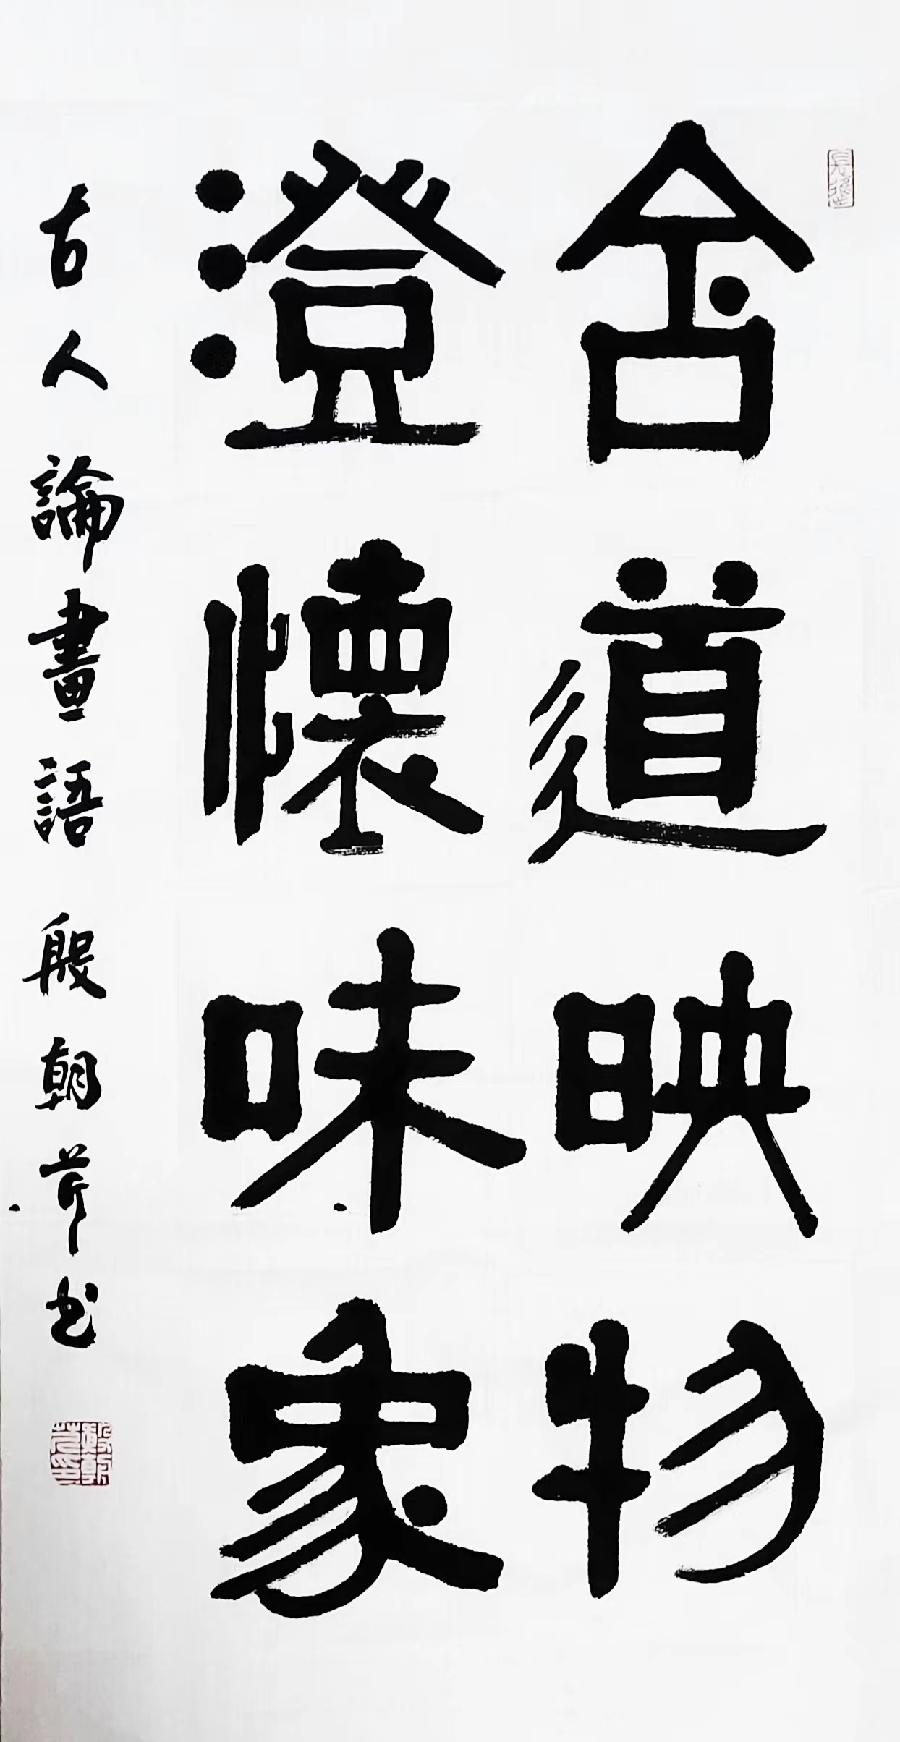 含道映物
澄懷味象
古人論畫語 殷朝芹书